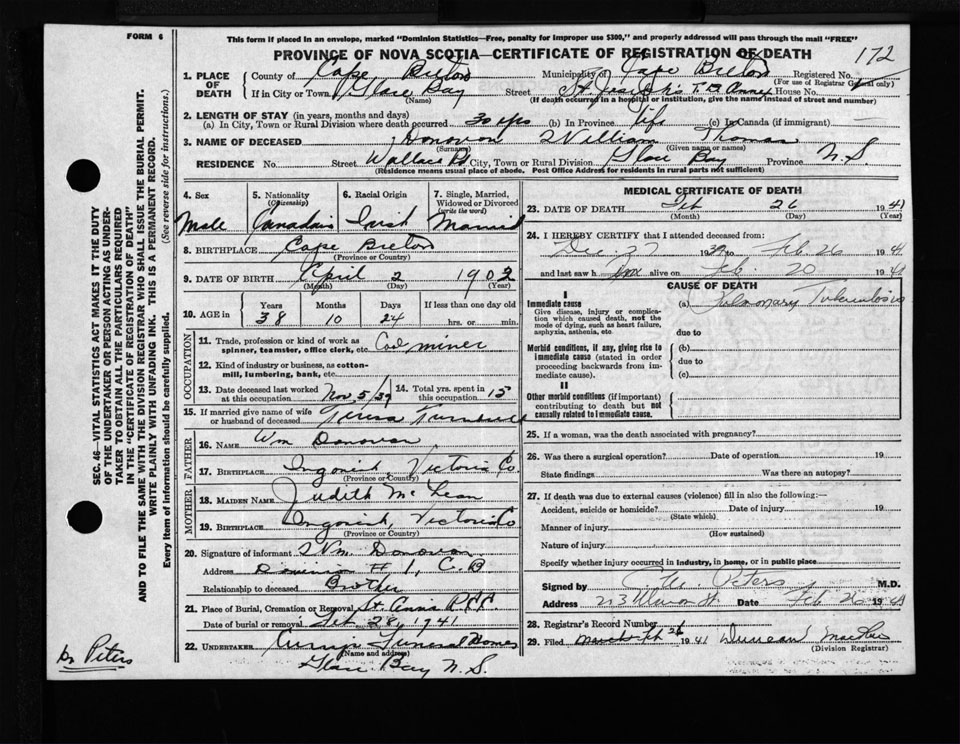 FORM 6
This form if placed in an envelope, marked "Dominion Statistics—Free, penalty for improper use $300," and properly addressed will pass through the mail "FREE"
PROVINCE OF NOVA SCOTIA—CERTIFICATE OF REGISTRATION OF DEATH
172
1. PLACE OF DEATH
County of Cape Breton Municipality of Cape Breton Registered No.
(For use of Registrar General only)
If in City or Town Glace Bay Street St. Joseph's T.B. Annex House No.
(Name) (If death occurred in a hospital or institution, give the name instead of street and number)
2. LENGTH OF STAY (in years, months and days)
(a) In City, Town or Rural Division where death occurred 30 yrs (b) In Province life (c) In Canada (if immigrant)
3. NAME OF DECEASED Donovan William Thomas
(Surname) (Given name or names)
RESIDENCE No. Street Wallace Rd City, Town or Rural Division Glace Bay Province N.S
(Residence means usual place of abode. Post Office Address for residents in rural parts not sufficient)
4. Sex
Male
5. Nationality
(Citizenship)
Canadian
6. Racial Origin
Irish
7. Single, Married, Widowed or Divorced
(write the word)
Married
8. BIRTHPLACE Cape Breton
(Province or Country)
9. DATE OF BIRTH April 2 1902
(Month) (Day) (Year)
10. AGE in
Years Months Days If less than one day old
38 10 24 hrs. or min.
OCCUPATION
11. Trade, profession or kind of work as spinner, teamster, office clerk, etc. Coal miner
12. Kind of industry or business, as cotton-mill, lumbering, bank, etc.
13. Date deceased last worked at this occupation Nov 5/39
14. Total yrs. spent in this occupation 15
15. If married give name of wife or husband of deceased Teresa Turnbull
FATHER
16. NAME Wm Donovan
17. BIRTHPLACE Ingonish, Victoria Co
(Province or Country)
MOTHER
18. MAIDEN NAME Judith McLean
19. BIRTHPLACE Ingonish, Victoria Co
(Province or Country)
20. Signature of informant Wm. Donovan
Address Dominion # 1, C.B
Relationship to deceased Brother
21. Place of Burial, Cremation or Removal St. Anns
Date of burial or removal Feb 28, 1941
22. UNDERTAKER Funeral Home
(Name and address)
Glace Bay N.S.
MEDICAL CERTIFICATE OF DEATH
23. DATE OF DEATH Feb 26 1941
(Month) (Day) (Year)
24. I HEREBY CERTIFY that I attended deceased from:
Dec. 27 1939 to Feb. 26 1941
and last saw him alive on Feb. 20 1941
CAUSE OF DEATH
I
Immediate cause
Give disease, injury or complication which caused death, not the mode of dying, such as heart failure, asphyxia, asthenia, etc.
(a) Pulmonary Tuberculosis
due to
Morbid conditions, if any, giving rise to immediate cause (stated in order proceeding backwards from immediate cause).
(b)
due to
(c)
II
Other morbid conditions (if important) contributing to death but not causally related to immediate cause.
25. If a woman, was the death associated with pregnancy?
26. Was there a surgical operation? Date of operation 19
State findings Was there an autopsy?
27. If death was due to external causes (violence) fill in also the following:—
Accident, suicide or homicide? Date of injury 19
(State which)
Manner of injury
(How sustained)
Nature of injury
Specify whether injury occurred in industry, in home, or in public place
Signed by Peters M.D.
Address Date Feb 26 1941
28. Registrar's Record Number
29. Filed 1941 Duncan
(Division Registrar)
SEC. 46—VITAL STATISTICS ACT MAKES IT THE DUTY
OF THE UNDERTAKER OR PERSON ACTING AS UNDERTAKER TO OBTAIN ALL THE PARTICULARS REQUIRED
IN THE "CERTIFICATE OF REGISTRATION OF DEATH"
AND TO FILE THE SAME WITH THE DIVISION REGISTRAR WHO SHALL ISSUE THE BURIAL PERMIT.
WRITE PLAINLY WITH UNFADING INK. THIS IS A PERMANENT RECORD.
Every item of information should be carefully supplied. (See reverse side for instructions.)
Dr Peters